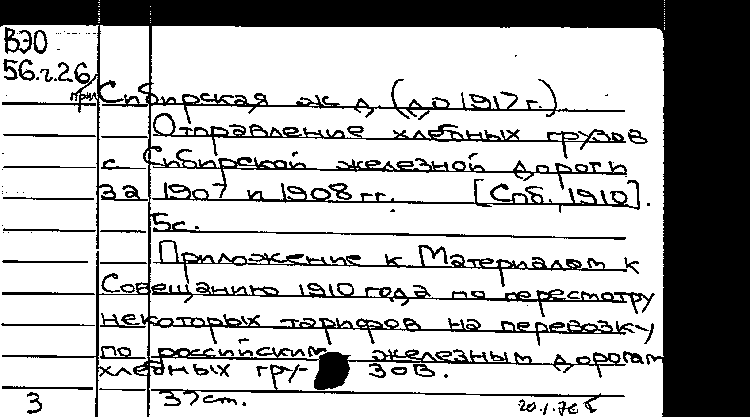 ВЭО
56.г.26
прил
Сибирская ж д (до 1917 г.)
Отправление хлебных грузов
с Сибирской железной дороги
за 1907 и 1908 гг. [Спб., 1910].
5с.
Приложение к Материалам к
Совещанию 1910 года по пересмотру
некоторых тарифов на перевозку
по российским железным дорогам
хлебных гру- зов.
3 37 ст.